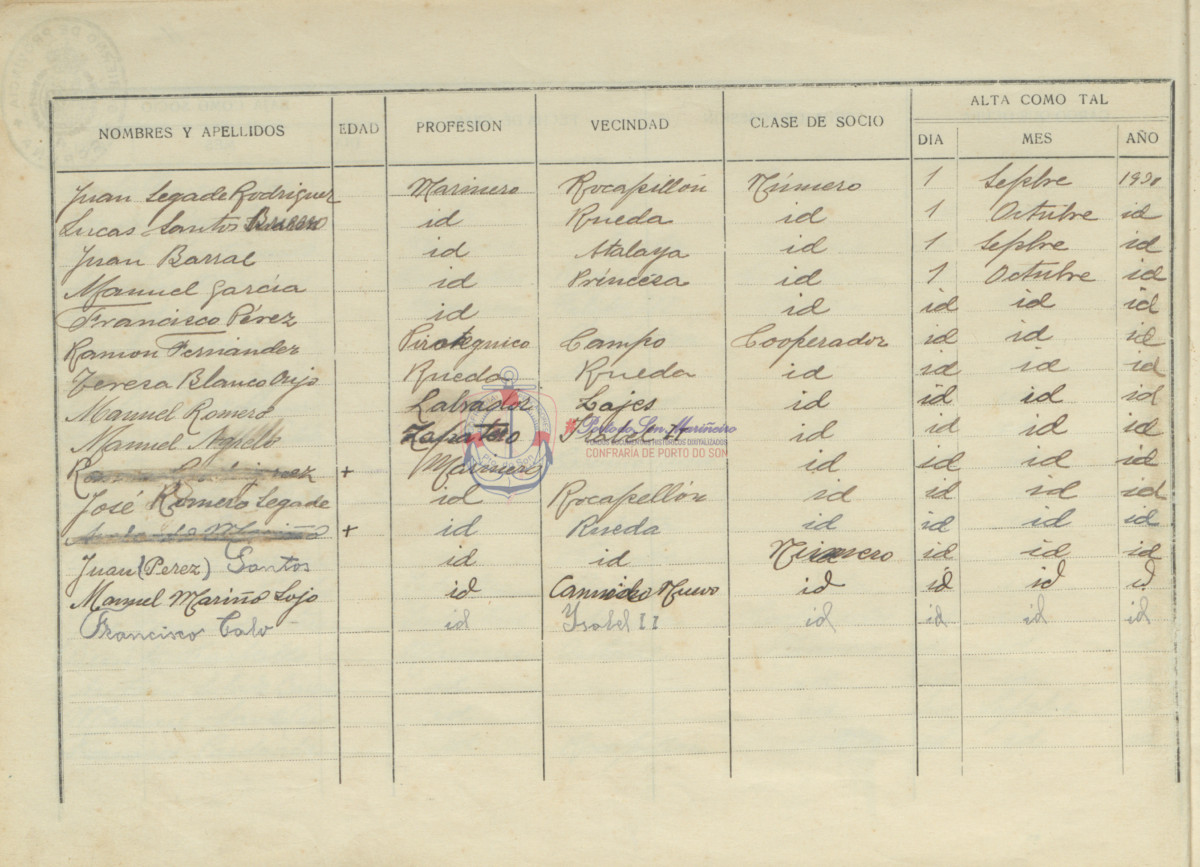 ALTA COMO TAL
NOMBRES Y APELLIDOS EDAD PROFESION VECINDAD CLASE DE SOCIO DIA MES AÑO
Juan Legade Rodriguez Marinero Rocapillón Número 1 Sepbre 1930
Lucas Santos id Rueda id 1 Octubre id
Juan Barral id Atalaya id 1 Sepbre id
Manuel García id Princesa id 1 Octubre id
Francisco Pérez id id id id id
Ramon Fernandez Pirotequico Campo Cooperador id id id
Teresa Blanco Oujo Rueda Rueda id id id id
Manuel Romero Labrador Lajes id id id id
Manuel Agrelo Zapatero II id id id id
+ Marinero id id id id
José Romero Legade id Rocapellón id id id id
+ id Rueda id id id id
Juan (Perez) Santos id id Número id id id
Manuel Mariño Lojo id Camino Nuevo id id id id
Francisco Calo id Ysabel II id id id id
#Porto do Son Mariñeiro
CONFRARÍA DE PORTO DO SON